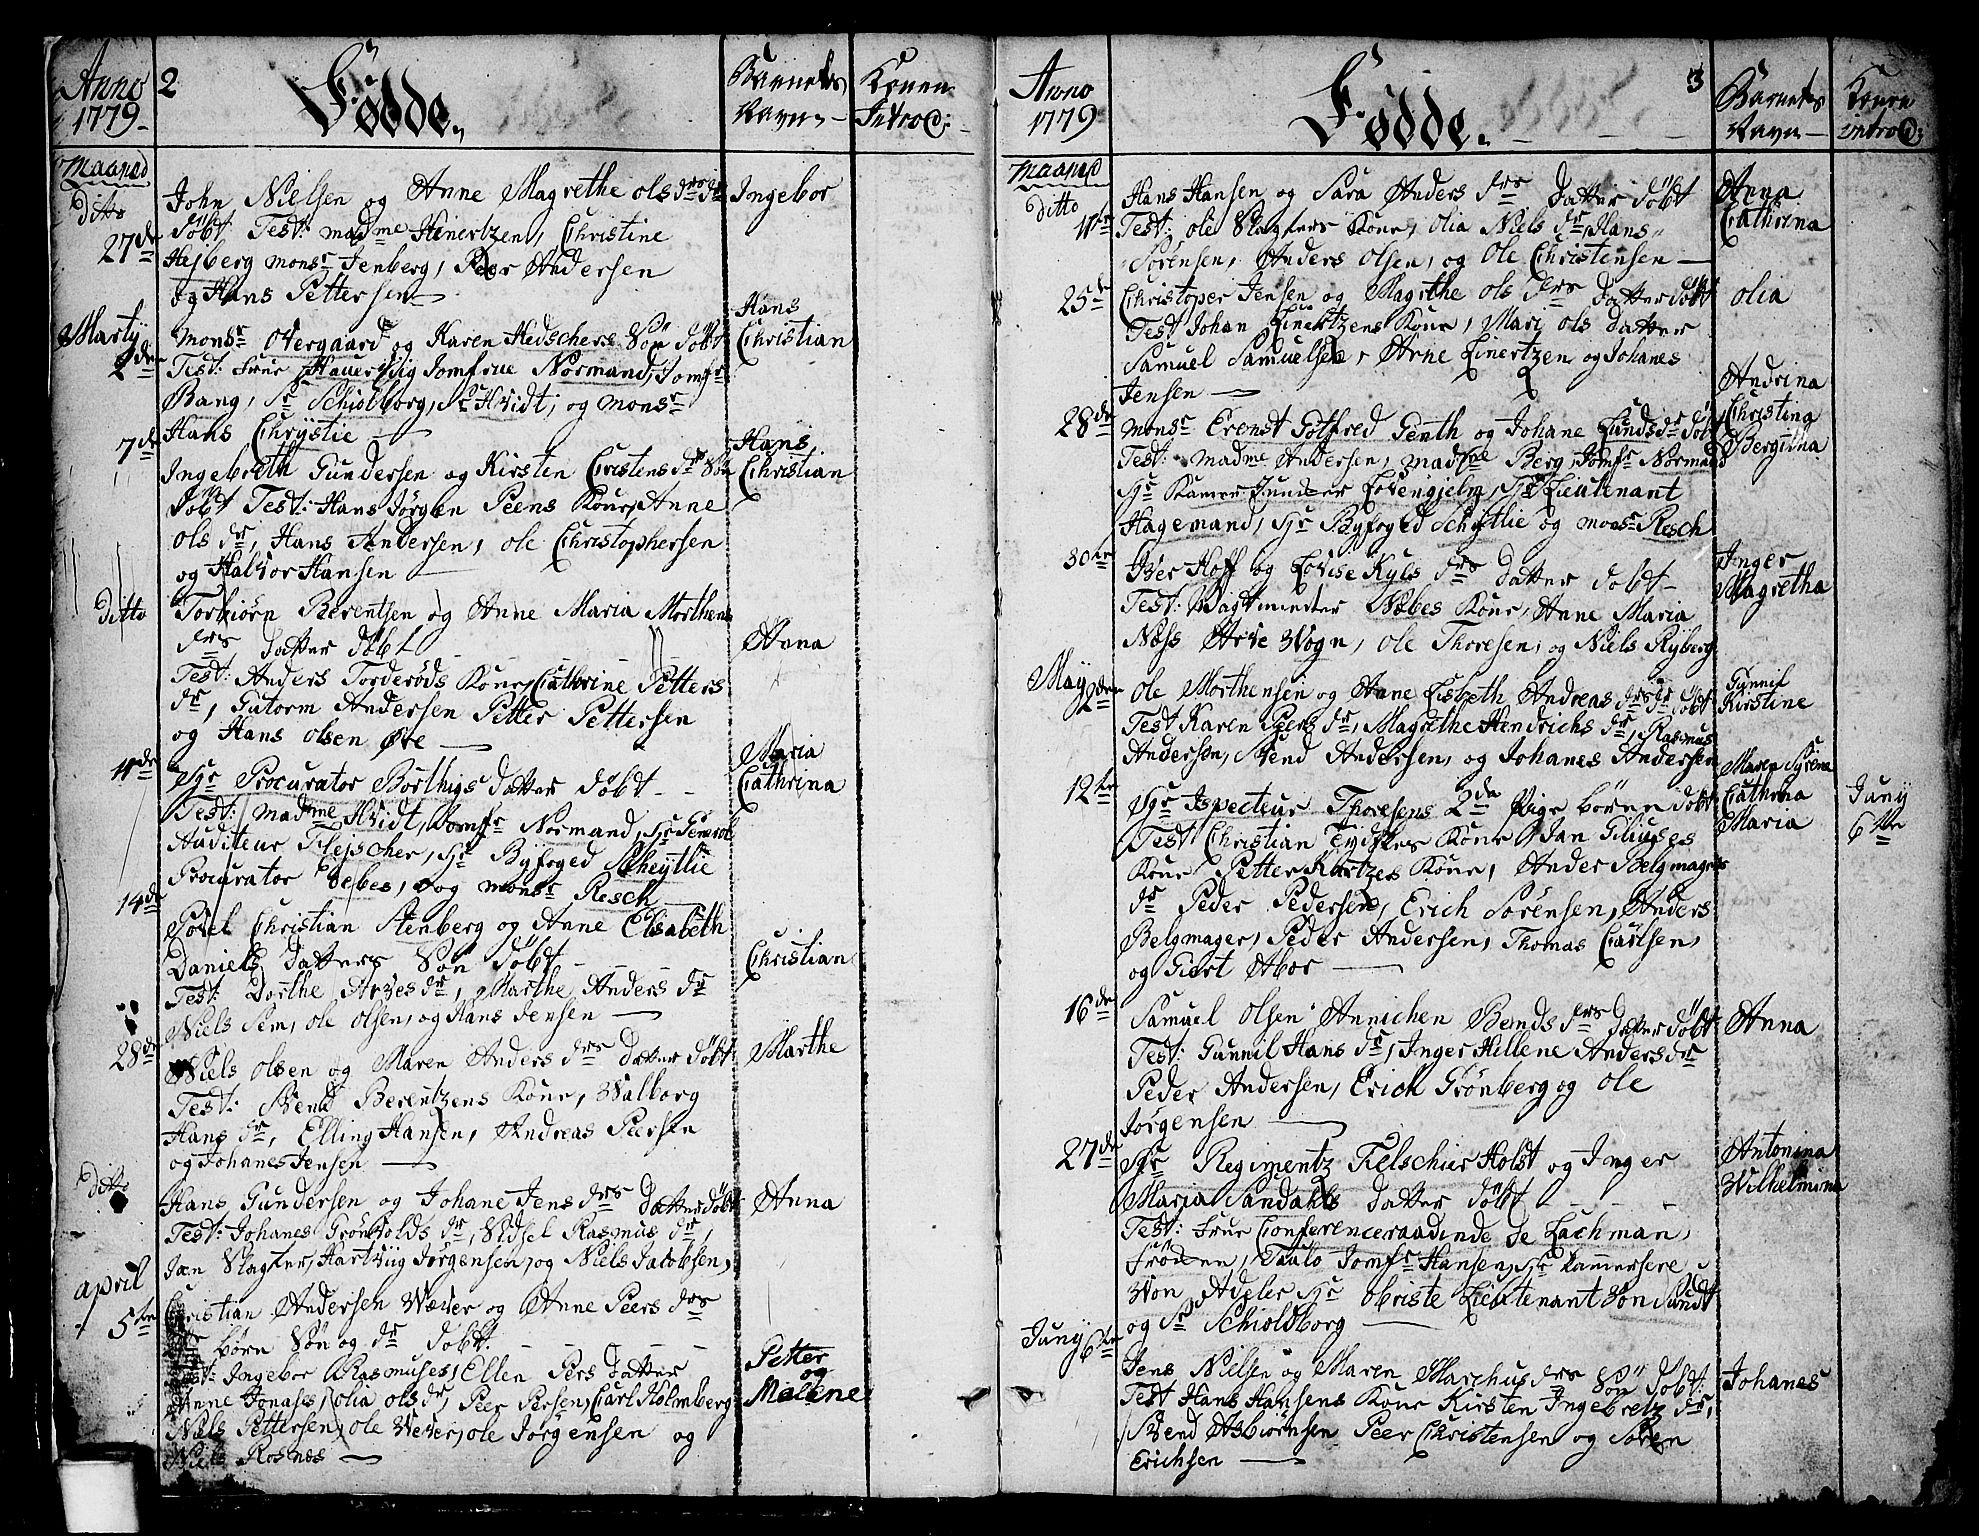 Anno 2 Fødde. Barnets Konen
1779 Navn Introd:
Maaned
ditto John Nielsen og Anne Magrethe ols drs dr Ingebor
27de døbt Test: madme Hinertzen, Christine
Hejberg monsr Jenberg, Peer Andersen
og Hans Pettersen
Marty Hans
2den monsr overgaard og Karen Hedschers Søn døbt Christian
Test: Frue Hauersig Jomfrue Normand, Jomfr
Bang, Sr Schiolborg, Sr Hvidt, og monsr
Hans Chrystie
7de Ingebreth Gundersen og Kirsten Christens drs Søn Hans Christian
døbt Test: Hans Jørgen Peens Kone, Anne
ols dr, Hans Andersen, ole Christophersen
og Halvor Hansen
ditto Torbiørn Berentsen og Anne Maria Morthens
drs datter døbt Anna
Test: Anders Torderøds Kone, Cathrine Petters
dr, Gutorm Andersen Petter Pettersen
og Hans olsen Øre
11de Sgr Procurator Borthigs datter døbt Maria Cathrina
Test: madme Hvidt, Jomfr Normand, Sgr General
Auditeur Flejscher, Sgr Byfoged Scheytlie
Procurator Debes, og monsr Resch
14de Povel Christian Stenberg og Anne Elisabeth
Daniels datters Søn døbt Christian
Test: Dorthe Arves dr, Marthe Anders dr
Niels Sem, ole olsen, og Hans Jensen
28de Niels olsen og Maren Anders drs datter døbt Marthe
Test: Svend Berentzens Kone, Walborg
Hans dr, Elling Hansen, Andreas Peersen
og Johanes Jensen
ditto Hans Gundersen og Johane Jens drs datter døbt Anna
Test: Johanes Grönvolds dr, Sidsel Rasmus dr,
Jan Slagter, Hartvig Jørgensen, og Niels Jacobsen,
april
5te Christian Andersen Wæver og Anne Peers drs
børn Søn og dr døbt. Petter og Malene
Test: Ingebor Rasmuses, Ellen Pers datter
Anne Jonases, olia ols dr, Peer Persen, Carl Holmberg
Niels Pettersen, ole Wever, ole Jørgensen og
Niels Rosnes
Anno Fødde. 3 Barnets Konen
1779 Navn introd:
Maaned
ditto Hans Hansen og Sara Anders drs datter døbt Anna
11te Test: ole Slagters Kone, olia Niels dr, Hans Cathrina
Sørensen, Anders olsen, og ole Christensen
25de Christoper Jensen og Magrethe ols drs datter døbt olia
Test Johan Linertzens Kone, Mari ols datter
Samuel Samuelsen, Arne Linertzen og Johanes
Jensen
28de monsr Erenst Gotfred Genth og Johane Lunds dr døbt Andrina Christina Bergitha
Test: madme Andersen, madme Berg, Jomfr Normand
Sgr Kamer Junker Lovengjelm, Sgr Lieutenant
Hagemand, Sgr Byfoged Scheytlie og monsr Resch
30te Iver Hoff og Lovise Kyls drs datter døbt Inger Magretha
Test: Vagtmester Wibes Kone, Anne Maria
Næss Arve Wogn, ole Thoresen, og Niels Ryberg
May
2den ole Morthensen og Anne Lisbeth Andreas drs dr døbt Gunnil Kirstine
Test Karen Peers dr, Magrethe Hendrichs dr, Rasmus
Andersen, Svend Andersen, og Johanes Andersen
12te Sgr Ispecteur Thoresens 2de Pige børn døbt Maren Syrena Cathrina Maria Juny 6te
Test Christian Tydskes Kone, Jan Gliuses
Kone Petter Kortzes Kone, Ander Belgmagers
dr Peder Pedersen, Erich Sørensen, Anders
Belgmager, Peder Andersen, Thomas Carlsen,
og Giert Abor
16de Samuel olsen Annichen Bends drs datter døbt Anna
Test: Gunnil Hans dr, Inger Hellene Anders dr
Peder Andersen, Erich Grönberg og ole
Jørgensen
27de Sgr Regimentz Felschier Holst og Inger Antonina
Maria Sandahls datter døbt Wilhelmina
Test: Frue Conferenceraadinde de Lachman,
Frøken, Paulo Jomfr Hansen, Sgr Kammerhere
Von Adeler Sgr obriste Lieutenant Von Sundt
og Sr Schioldborg
Juny 6te Jens Nielsen og Maren Marchus drs Søn døbt: Johanes
Test Hans Hansens Kone Kirsten Ingebretz dr,
Svend Asbiørnsen Peer Christensen og Søren
Erichsen